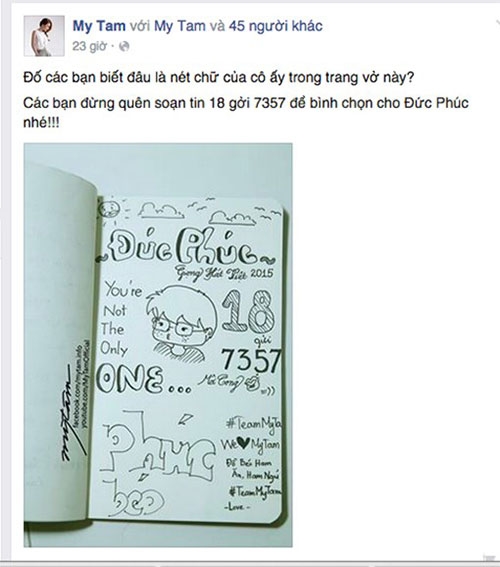 My Tam với My Tam và 45 người khác
23 giờ ·
Đố các bạn biết đâu là nét chữ của cô ấy trong trang vở này?
Các bạn đừng quên soạn tin 18 gởi 7357 để bình chọn cho Đức Phúc
nhé!!!
~Đức Phúc~
Giọng Hát Việt 2015
You're
Not
The
Only
ONE...
18
gửi
7357
=))
Phúc
béo
#TeamMyTa
We♥MyTam
Đồ Béo Ham
Ăn, Ham Ngủ
#TeamMyTam
-Love-
mytam
facebook.com/mytam.info
youtube.com/MyTamOfficial